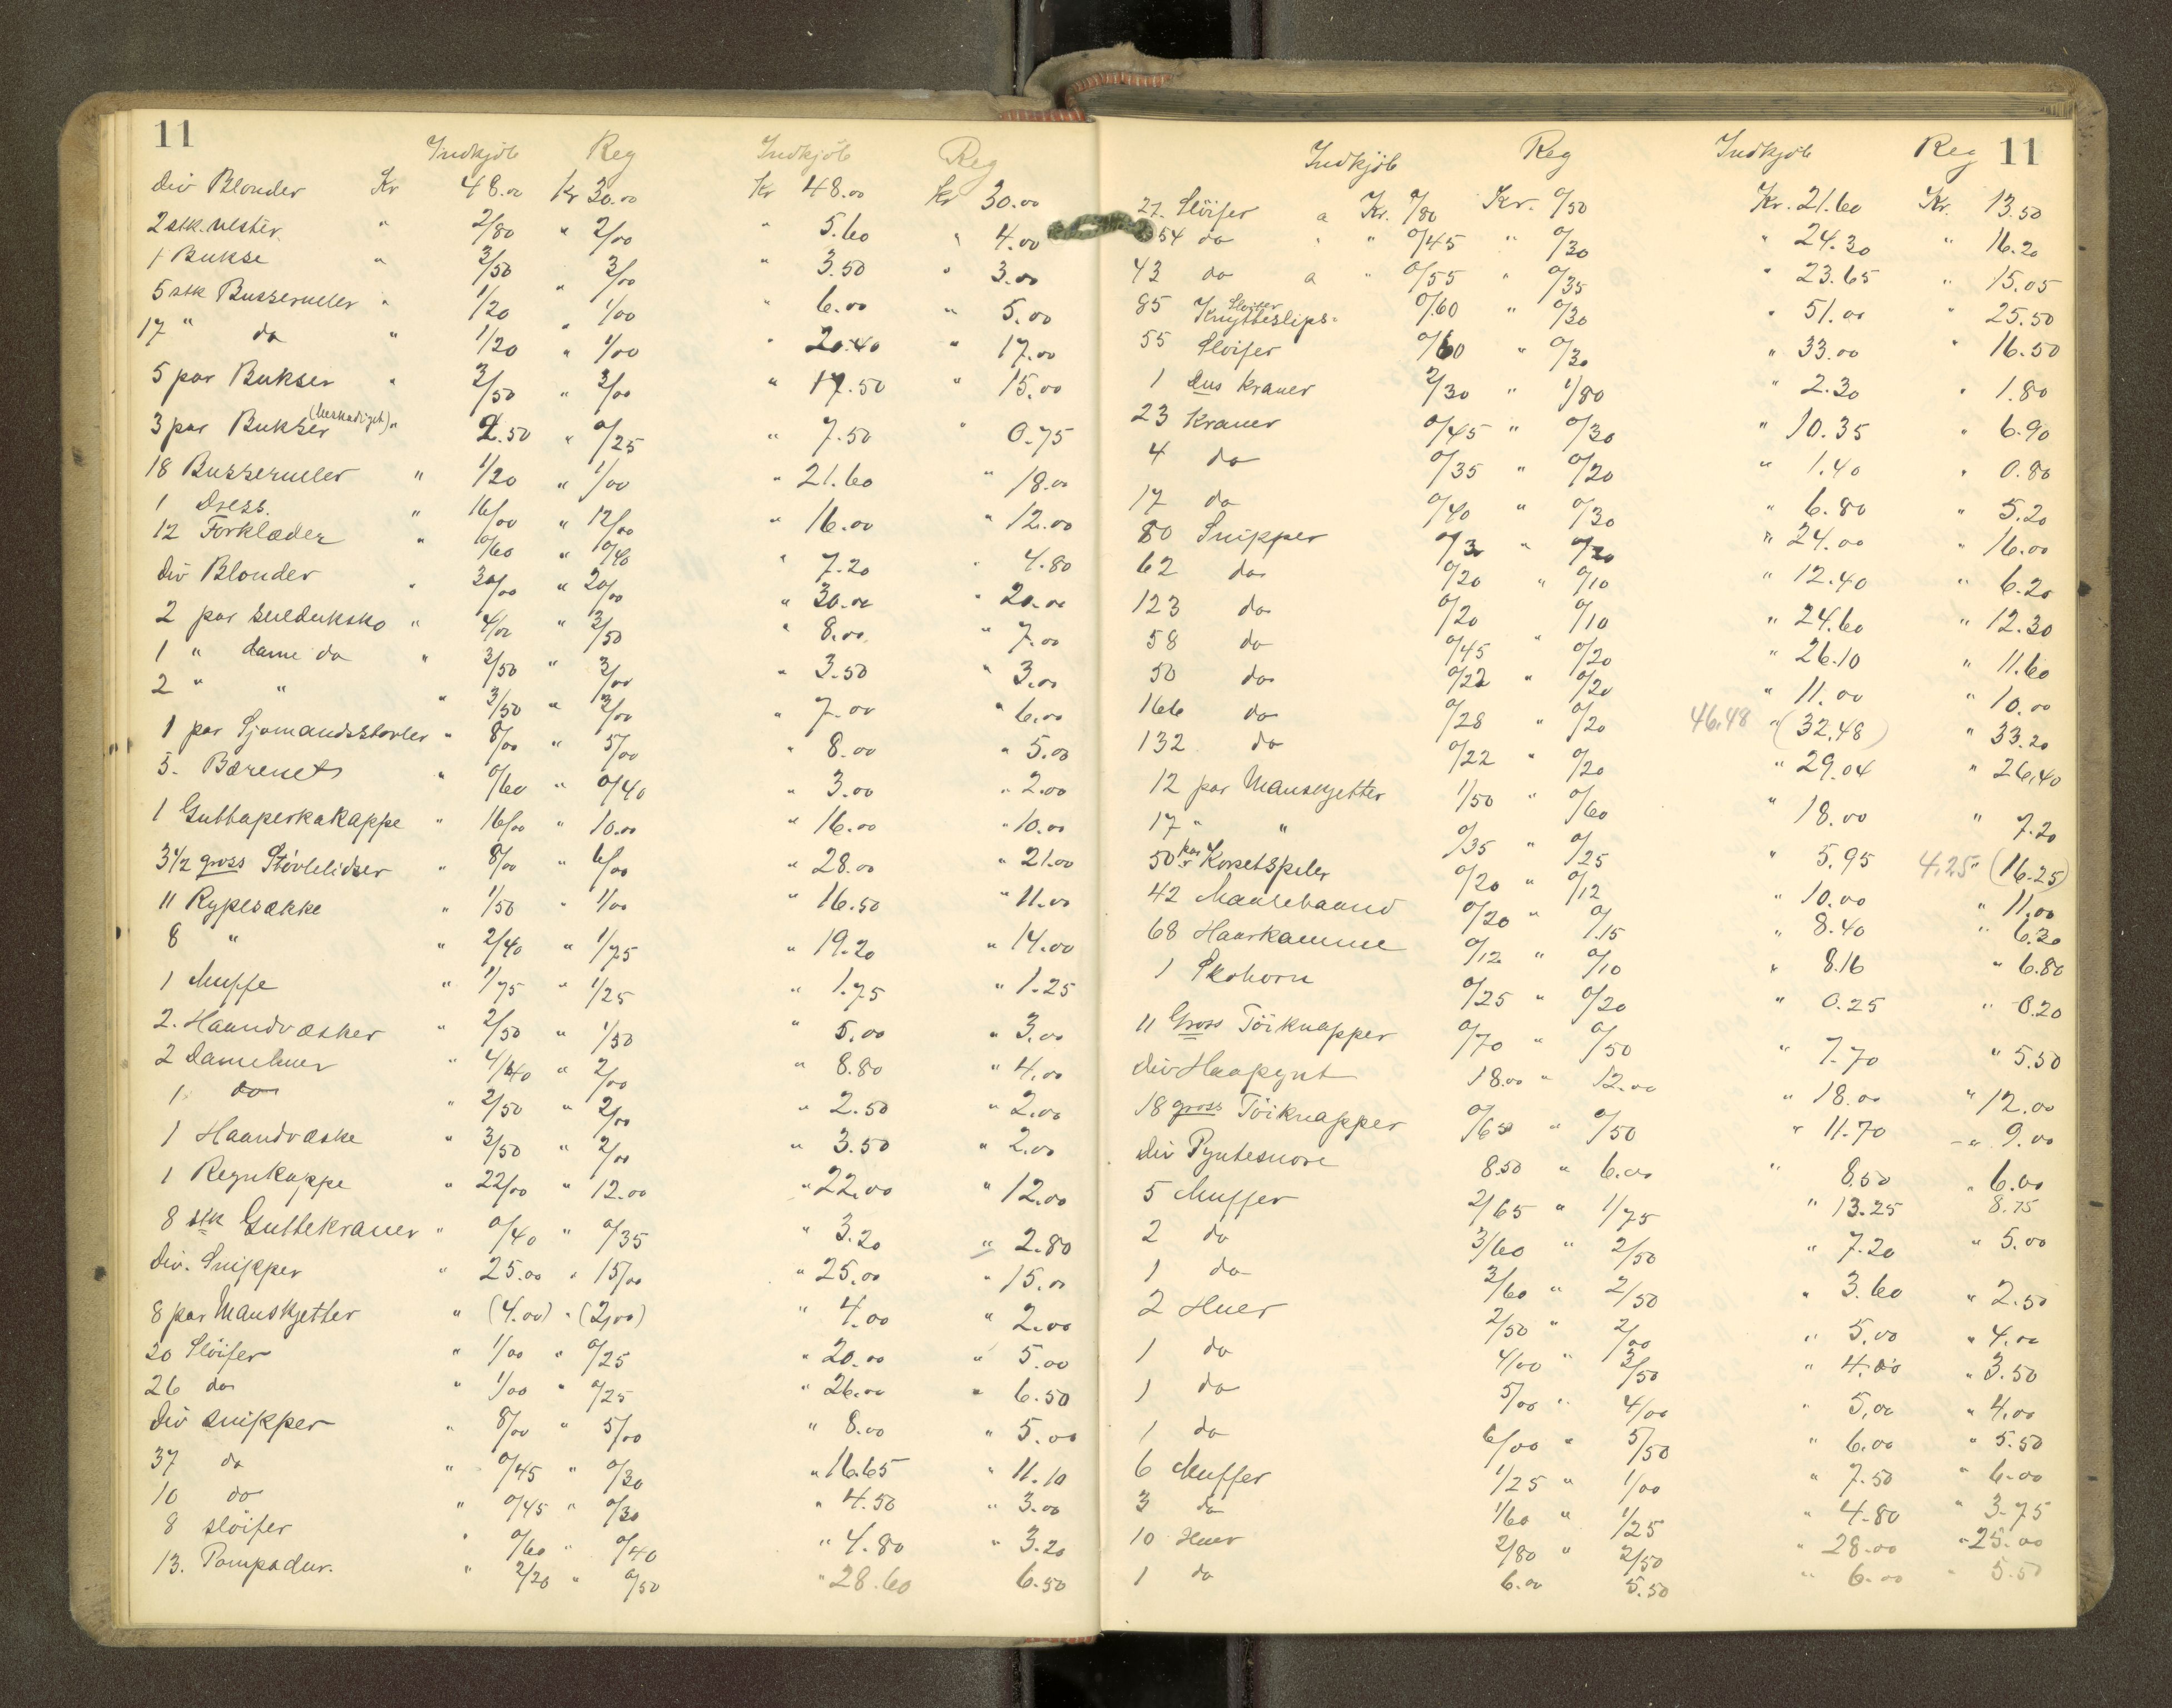 11
Indkjöb Reg Indkjöb Reg
div Blonder Kr 48.00 Kr 30.00 Kr 48.00 Kr 30.00
2 stk. vester. " 2/80 " 2/00 " 5.60 " 4.00
1 Bukse " 3/50 " 3/00 " 3.50 " 3.00
5 stk Busseruller " 1/20 " 1/00 " 6.00 " 5.00
17 " do " 1/20 " 1/00 " 20.40 " 17.00
5 par Bukser " 3/50 " 3/00 " 17.50 " 15.00
3 par Bukser (beskadiget) " 2.50 " 0/25 " 7.50 " 0.75
18 Busseruller " 1/20 " 1/00 " 21.60 " 18.00
1 Dress. " 16/00 " 12/00 " 16.00 " 12.00
12 Forklæder " 0/60 " 0/40 " 7.20 " 4.80
div Blonder " 30/00 " 20/00 " 30.00 " 20.00
2 par seilduksko " 4/00 " 3/50 " 8.00 " 7.00
1 " dame do " 3/50 " 3/00 " 3.50 " 3.00
2 " " " 3/50 " 3/00 " 7.00 " 6.00
1 par Sjømandsstøvler " 8/00 " 5/00 " 8.00 " 5.00
5. Bærenet " 0/60 " 0/40 " 3.00 " 2.00
1 Guttaperkakappe " 16/00 " 10.00 " 16.00 " 10.00
3 1/2 gross Stövlelidser " 8/00 " 6/00 " 28.00 " 21.00
11 Rypesække " 1/50 " 1/00 " 16.50 " 11.00
8 " " 2/40 " 1/75 " 19.20 " 14.00
1 Muffe " 1/75 " 1/25 " 1.75 " 1.25
2. Haandvæsker " 2/50 " 1/50 " 5.00 " 3.00
2 Damehuer " 4/40 " 2/00 " 8.80 " 4.00
1 do " 2/50 " 2/00 " 2.50 " 2.00
1 Haandvæske " 3/50 " 2/00 " 3.50 " 2.00
1 Regnkappe " 22/00 " 12.00 " 22.00 " 12.00
8 stk Guttekraver " 0/40 " 0/35 " 3.20 " 2.80
div. Snipper " 25.00 " 15/00 " 25.00 " 15.00
8 par Manskjetter " (4.00) " (2/00) " 4.00 " 2.00
20 Slöifer " 1/00 " 0/25 " 20.00 " 5.00
26 do " 1/00 " 0/25 " 26.00 " 6.50
div snipper " 8/00 " 5/00 " 8.00 " 5.00
37 do " 0/45 " 0/30 " 16.65 " 11.10
10 do " 0/45 " 0/30 " 4.50 " 3.00
8 slöifer " 0/60 " 0/40 " 4.80 " 3.20
13. Pompadur. " 2/20 " 0/50 " 28.60 6.50
Indkjöb Reg Indkjöb Reg 11
27. Slöifer a Kr. 0/80 Kr. 0/50 Kr. 21.60 Kr. 13.50
54 do " " 0/45 " 0/30 " 24.30 " 16.20
43 do a " 0/55 " 0/35 " 23.65 " 15.05
85 Knytteslips Sløifer 0/60 " 0/30 " 51.00 " 25.50
55 Slöifer 0/60 " 0/30 " 33.00 " 16.50
1 dus kraver 2/30 " 1/80 " 2.30 " 1.80
23 Kraver 0/45 " 0/30 " 10.35 " 6.90
4 do 0/35 " 0/20 " 1.40 " 0.80
17 do 0/40 " 0/30 " 6.80 " 5.20
80 Snipper 0/3 " 0/20 " 24.00 " 16.00
62 do 0/20 " 0/10 " 12.40 " 6.20
123 do 0/20 0/10 " 24.60 " 12.30
58 do 0/45 " 0/20 " 26.10 " 11.60
50 do 0/22 " 0/20 " 11.00 " 10.00
166 do 0/28 " 0/20 46.48 " (32.48) " 33.20
132 do 0/22 " 0/20 " 29.04 " 26.40
12 par Manskjetter 1/50 " 0/60 " 18.00 " 7.20
17 " " 0/35 " 0/25 " 5.95 4.25 " (16.25)
50 par Korsetspiler 0/20 " 0/12 " 10.00 " 11.00
42 Maalebaand 0/20 " 0/.15 " 8.40 " 6.30
68 Haarkamme 0/12 " 0/10 " 8.16 " 6.80
1 Skohorn 0/25 " 0/20 " 0.25 " 0.20
11 Gross Töiknapper 0/70 " 0/50 " 7.70 " 5.50
div Haapynt 18.00 " 12.00 " 18.00 " 12.00
18 gross Töiknapper 0/65 " 0/50 " 11.70 " 9.00
div Pyntesnore 8.50 " 6.00 " 8.50 " 6.00
5 Muffer 2/65 " 1/75 " 13.25 8.75
2 do 3/60 " 2/50 " 7.20 " 5.00
1 do 3/60 " 2/50 " 3.60 " 2.50
2 Huer 2/50 " 2/00 " 5.00 " 4.00
1 do 4/00 " 3/50 " 4.00 " 3.50
1 do 5/00 " 4/00 " 5.00 " 4.00
1 do 6/00 " 5/50 " 6.00 " 5.50
6 Muffer 1/25 " 1/00 " 7.50 " 6.00
3 do 1/60 " 1/25 " 4.80 " 3.75
10 Huer 2/80 " 2/50 " 28.00 " 25.00
1 do 6.00 5.50 " 6.00 " 5.50